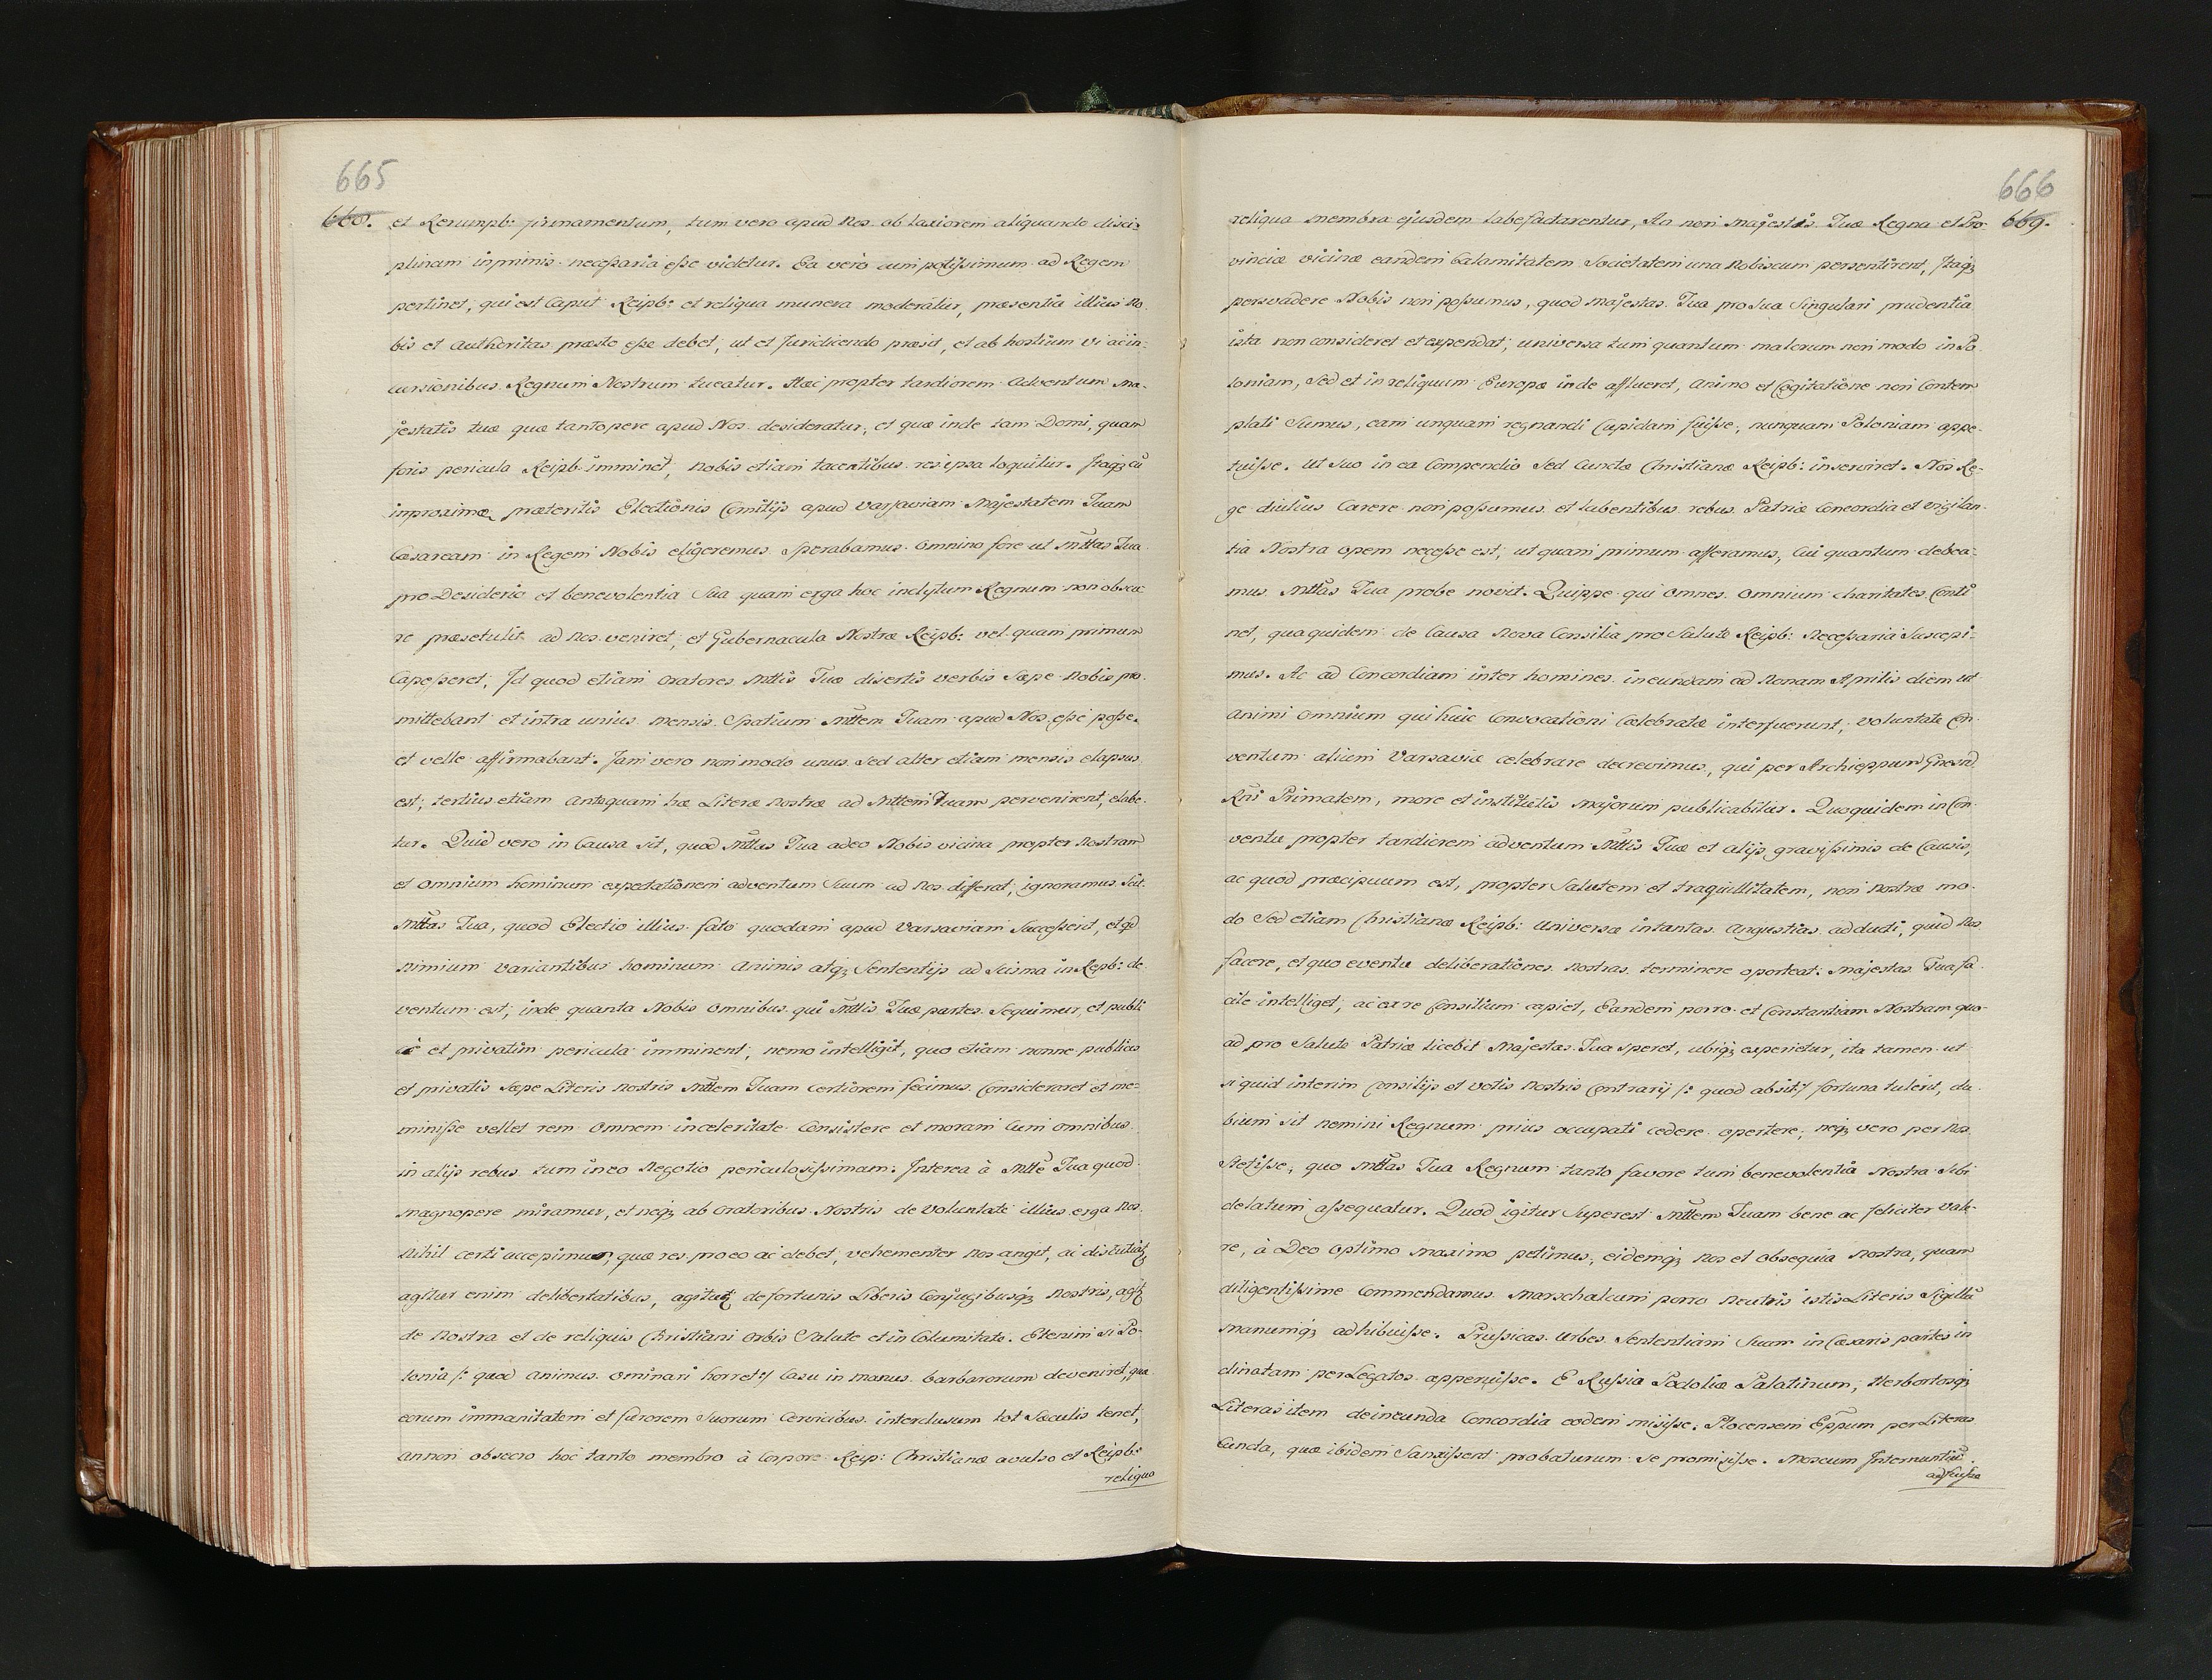 665
668. et Rerumpb: firmamentum, tum vero apud Nos ob laxiorem aliquando disci-
plinam inprimis necessaria esse videtur. Ea vero cum potissimum ad Regem
pertinet, qui est Caput Reipb: et reliqua munera moderatur, præsentia illius no-
bis et Authoritas præsto esse debet, ut et Juridicendo præsit, et ab hostium vi ac in-
cursionibus Regnum Nostrum tueatur. Hæc propter tardiorem Adventum Ma-
jestatis tuæ quæ tantopere apud Nos desideratur, et quæ inde tam Domi, quam
foris pericula Reipb. imminet, nobis etiam tacentibus res ipsa loquitur. Itaq; cũ
inproxime præteritis Electionis Comitijs apud Varsaviam Majestatem Tuam
Cæsaream in Regem Nobis eligeremus Sperabamus omnino fore ut Mttas Tua
pro Desiderio et benevolentia Sua quam erga hoc inclytum Regnum non obscu-
re præsetulit ad nos veniret, et Gubernacula Nostræ Reipb: vel quam primum
Capesseret, Id quod etiam oratores Mttis Tuæ disertis verbis Sæpe Nobis pro-
mittebant et intra unius mensis Spatium Mttem Tuam apud Nos esse posse
et velle affirmabant. Jam vero non modo unus Sed alter etiam mensis elapsus
est, tertius etiam Antequam hæ Literæ nostræ ad Mttem Tuam pervenirent, elabe-
tur. Quid vero in Causa sit, quod Mttas Tua adeo Nobis vicina propter Nostram
et Omnium hominum expectationem adventum Suum ad Nos differat, ignoramus. Scit
Mttas Tua, quod Electio illius fato quodam apud Varsaviam Successerit, et qd
nimium variantibus hominum Animis atq; Sententijs ad Scisma in Repb: de-
ventum est, inde quanta Nobis Omnibus qui Mttis Tuæ partes Sequimur, et publi
cè et privatim pericula imminent, nemo intelligit, quo etiam nonne publicis
et privatis Sæpe Literis nostris Mttem Tuam certiorem fecimus. Consideraret et me-
minisse vellet rem Omnem inceleritate Consistere et moram Cum omnibus
in alijs rebus tum in eo Negotio periculosissimam. Interea à Mtte Tua quod
magnopere miramur, et neq; ab Oratoribus Nostris de Voluntate illius erga Nos
Nihil certi accepimus, quæ res pro eo ac debet, vehementer nos angit, ac discutiatq;
agitur enim delibertatibus, agitur de fortunis Liberis Conjugibusq; nostris, agitr
de Nostra et de reliquis Christiani Orbis Salute et in Columitate. Etenim si Po-
lonia /: quod Animus Ominari horret :/ Casu in manus barbarorum deveniret, quæ
eorum immanitatem et furorem Suorum Cervicibus interclusum tot Sæculis tenet,
annon obsecro hoc tanto membro à Corpore Reip: Christianæ avulso et Reipb:
reliqua
666
669.
reliqua membra ejusdem labefactarentur, An non Majestis Tuæ Regna et Pro-
vinciæ vicinæ eandem Calamitatem Societatem una Nobiscum persentirent, Itaq;
persvadere Nobis non possumus, quod Majestas Tua pro Sua Singulari prudentia
ista non consideret et expendat, universa tum quantum malorum non modo in Po
loniam, Sed et in reliquum Europæ inde afflueret, Animo et Cogitatione non Contem
plati Sumus, eam unquam regnandi Cupidam fuisse, nunquam Poloniam appe-
tuisse. Ut Suo in ea Compendio Sed Cunctæ Christianæ Reipb: inserviret. Nos Re-
ge diutius Carere non possumus et labentibus rebus Patriæ Concordia et vigilan-
tia Nostra opem necesse est, ut quam primum afferamus, Cui quantum debea-
mus Mttas Tua probe novit. Quippe qui Omnes Omnium charitates Conti
net, qua quidem de Causa nova Consilia pro Salute Reipb: Necessaria Suscepi-
mus. Ac ad Concordiam inter homines ineundam ad Nonam Aprilis diem ut
Animi omnium qui huic Convocationi Celebratæ interfuerunt, voluntate Con-
ventum alium Varsaviæ celebrare decrevimus, qui per Archieppum Gnesn
Rni Primatem, more et institutis Majorum publicabitur. Quoquidem in Con-
ventu propter tardiorem adventum Mttis Tuæ et alijs gravissimis de Causis,
ac quod præcipuum est, propter Salutem et traquillitatem, non nostræ mo-
do Sed etiam Christianæ Reipb: Universæ intantas Angustias adducti, quid Nos
facere, et quo eventu deliberationes nostras terminere oporteat. Majestas Tua fa-
cile intelliget, ac ex re Consilium capiet, Eandem porro et Constantiam Nostram quo-
ad pro Salute Patriæ licebit Majestas Tua Speret, ubiq; experietur, ita tamen ut
si quid interim Consilijs et votis Nostris Contrarij /: quod absit :/ fortuna tulerit, du-
bium sit nemini Regnum prius occupati cedere opertere, neq; vero per Nos
Stetisse, quo Mttas Tua Regnum tanto favore tum benevolentia Nostra Sibi
delatum assequatur. Quod igitur Superest Mttem Tuam bene ac feliciter Vale-
re, à Deo Optimo Maximo petimus, eidemq; nos et obsequia Nostra, quam
diligentissime Commendamus. Marschalcum porro neutris istis Literis Sigillũ
manumq; adhibuisse. Prussicas Urbes Sententiam Suam in Cæsaris partes in
clinatam per Legatos apperuisse. E Russia Podoliæ Palatinum, Herbortosq;
Literas item deineunda Concordia eodem misisse. Plocensem Eppum per Literas
Cuncta, quæ ibidem Sanxissent probaturum se promisisse. Moscum Internuntiũ
adfuisse